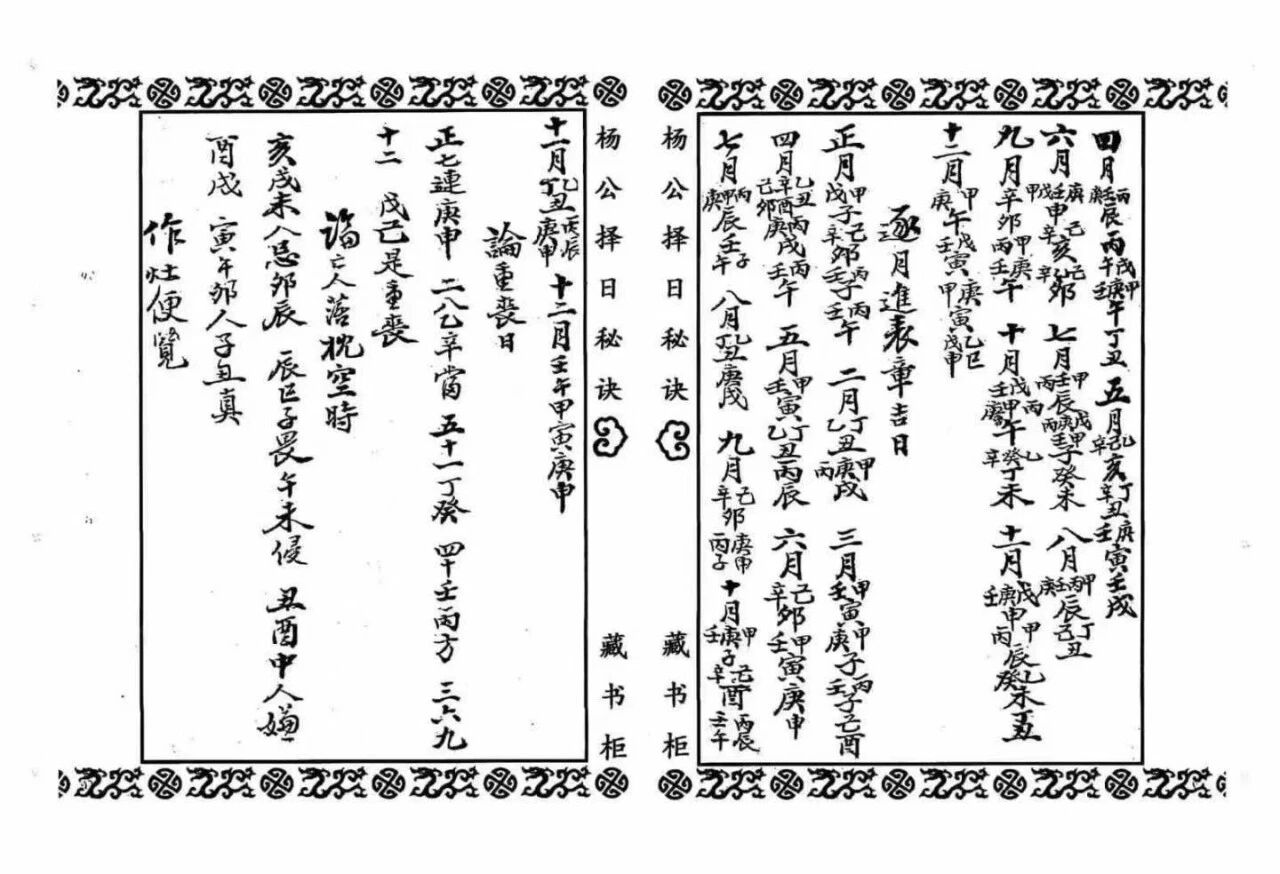 四月丙庚壬辰丙午戊甲庚壬午丁丑 五月乙己辛亥丁辛丑庚壬寅壬戌
六月庚壬戊甲申己辛亥己辛卯 七月甲壬丙辰戊庚甲丙壬子癸未 八月甲丙壬庚辰丁己丑
九月辛卯甲庚丙壬午 十月戊壬甲庚午丙乙癸辛丁未 十一月戊庚壬申甲丙辰乙癸未丁丑
十二月甲庚午戊壬寅庚甲寅乙巳戊申
逐月進表章吉日
正月甲戊子己辛卯丙壬子丙壬午 二月丁乙丑甲庚丙戌 三月甲壬寅甲庚子丙壬子己酉
四月乙丑辛酉己卯丙庚戌丙壬午 五月甲壬寅丁乙丑丙辰 六月己辛卯甲壬寅庚申
七月丙甲庚辰壬子午 八月乙丁丑庚戌 九月己辛卯庚申丙子 十月甲庚壬子己辛酉丙辰壬午
杨公择日秘诀
藏书柜
杨公择日秘诀
藏书柜
十一月乙丁丑丙辰庚申 十二月壬午甲寅庚申
論重喪日
正七連庚甲 二八乙辛當 五十一丁癸 四十壬丙方 三六九
十二 戊己是重喪
論亡人落枕空時
亥戌未人忌卯辰 辰巳子畏午未侵 丑酉申人嫌
酉戌 寅午卯人子丑真
作灶便覽